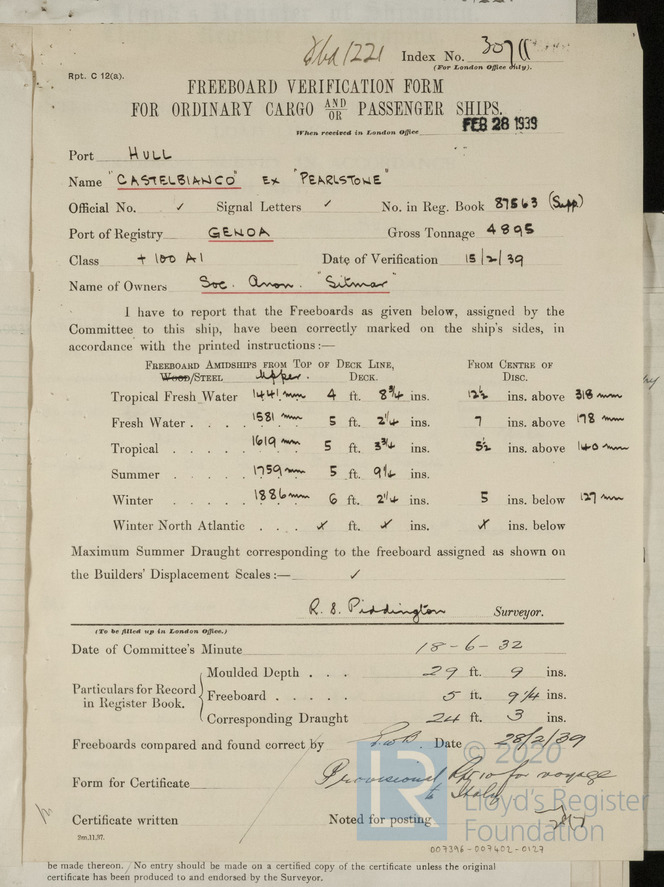 Sbd 1221 Index No. 307
(For London Office only).
Rpt. C 12(a).
FREEBOARD VERIFICATION FORM
FOR ORDINARY CARGO AND/OR PASSENGER SHIPS.
When received in London Office FEB 28 1939
Port HULL
Name "CASTELBIANCO" EX "PEARLSTONE"
Official No. ✓ Signal Letters ✓ No. in Reg. Book 87563 (Supp)
Port of Registry GENOA Gross Tonnage 4895
Class + 100 A1 Date of Verification 15/2/39
Name of Owners Soc. Anon. "Sitmar"
I have to report that the Freeboards as given below, assigned by the
Committee to this ship, have been correctly marked on the ship's sides, in
accordance with the printed instructions:—
FREEBOARD AMIDSHIPS FROM TOP OF DECK LINE, FROM CENTRE OF
WOOD/STEEL Upper. DECK. DISC.
Tropical Fresh Water 1441 mm 4 ft. 8 3/4 ins. 12 1/2 ins. above 318 mm
Fresh Water . . . . 1581 mm 5 ft. 2 1/4 ins. 7 ins. above 178 mm
Tropical . . . . . 1619 mm 5 ft. 3 3/4 ins. 5 1/2 ins. above 140 mm
Summer . . . . . 1759 mm 5 ft. 9 1/4 ins.
Winter . . . . . 1886 mm 6 ft. 2 1/4 ins. 5 ins. below 127 mm
Winter North Atlantic . . . x ft. x ins. x ins. below
Maximum Summer Draught corresponding to the freeboard assigned as shown on
the Builders' Displacement Scales :— ✓
R. S. Piddington Surveyor.
(To be filled up in London Office.)
Date of Committee's Minute 18-6-32
Particulars for Record in Register Book.
Moulded Depth . . . 29 ft. 9 ins.
Freeboard . . . . . 5 ft. 9 1/4 ins.
Corresponding Draught 24 ft. 3 ins.
Freeboards compared and found correct by Date 28/2/39
Form for Certificate Provisional Rpt 10 for voyage
to Italy
Certificate written Noted for posting
2m.11.37.
© 2020
LR Lloyd's Register
Foundation
007396-007402-0127
be made thereon. No entry should be made on a certified copy of the certificate unless the original
certificate has been produced to and endorsed by the Surveyor.